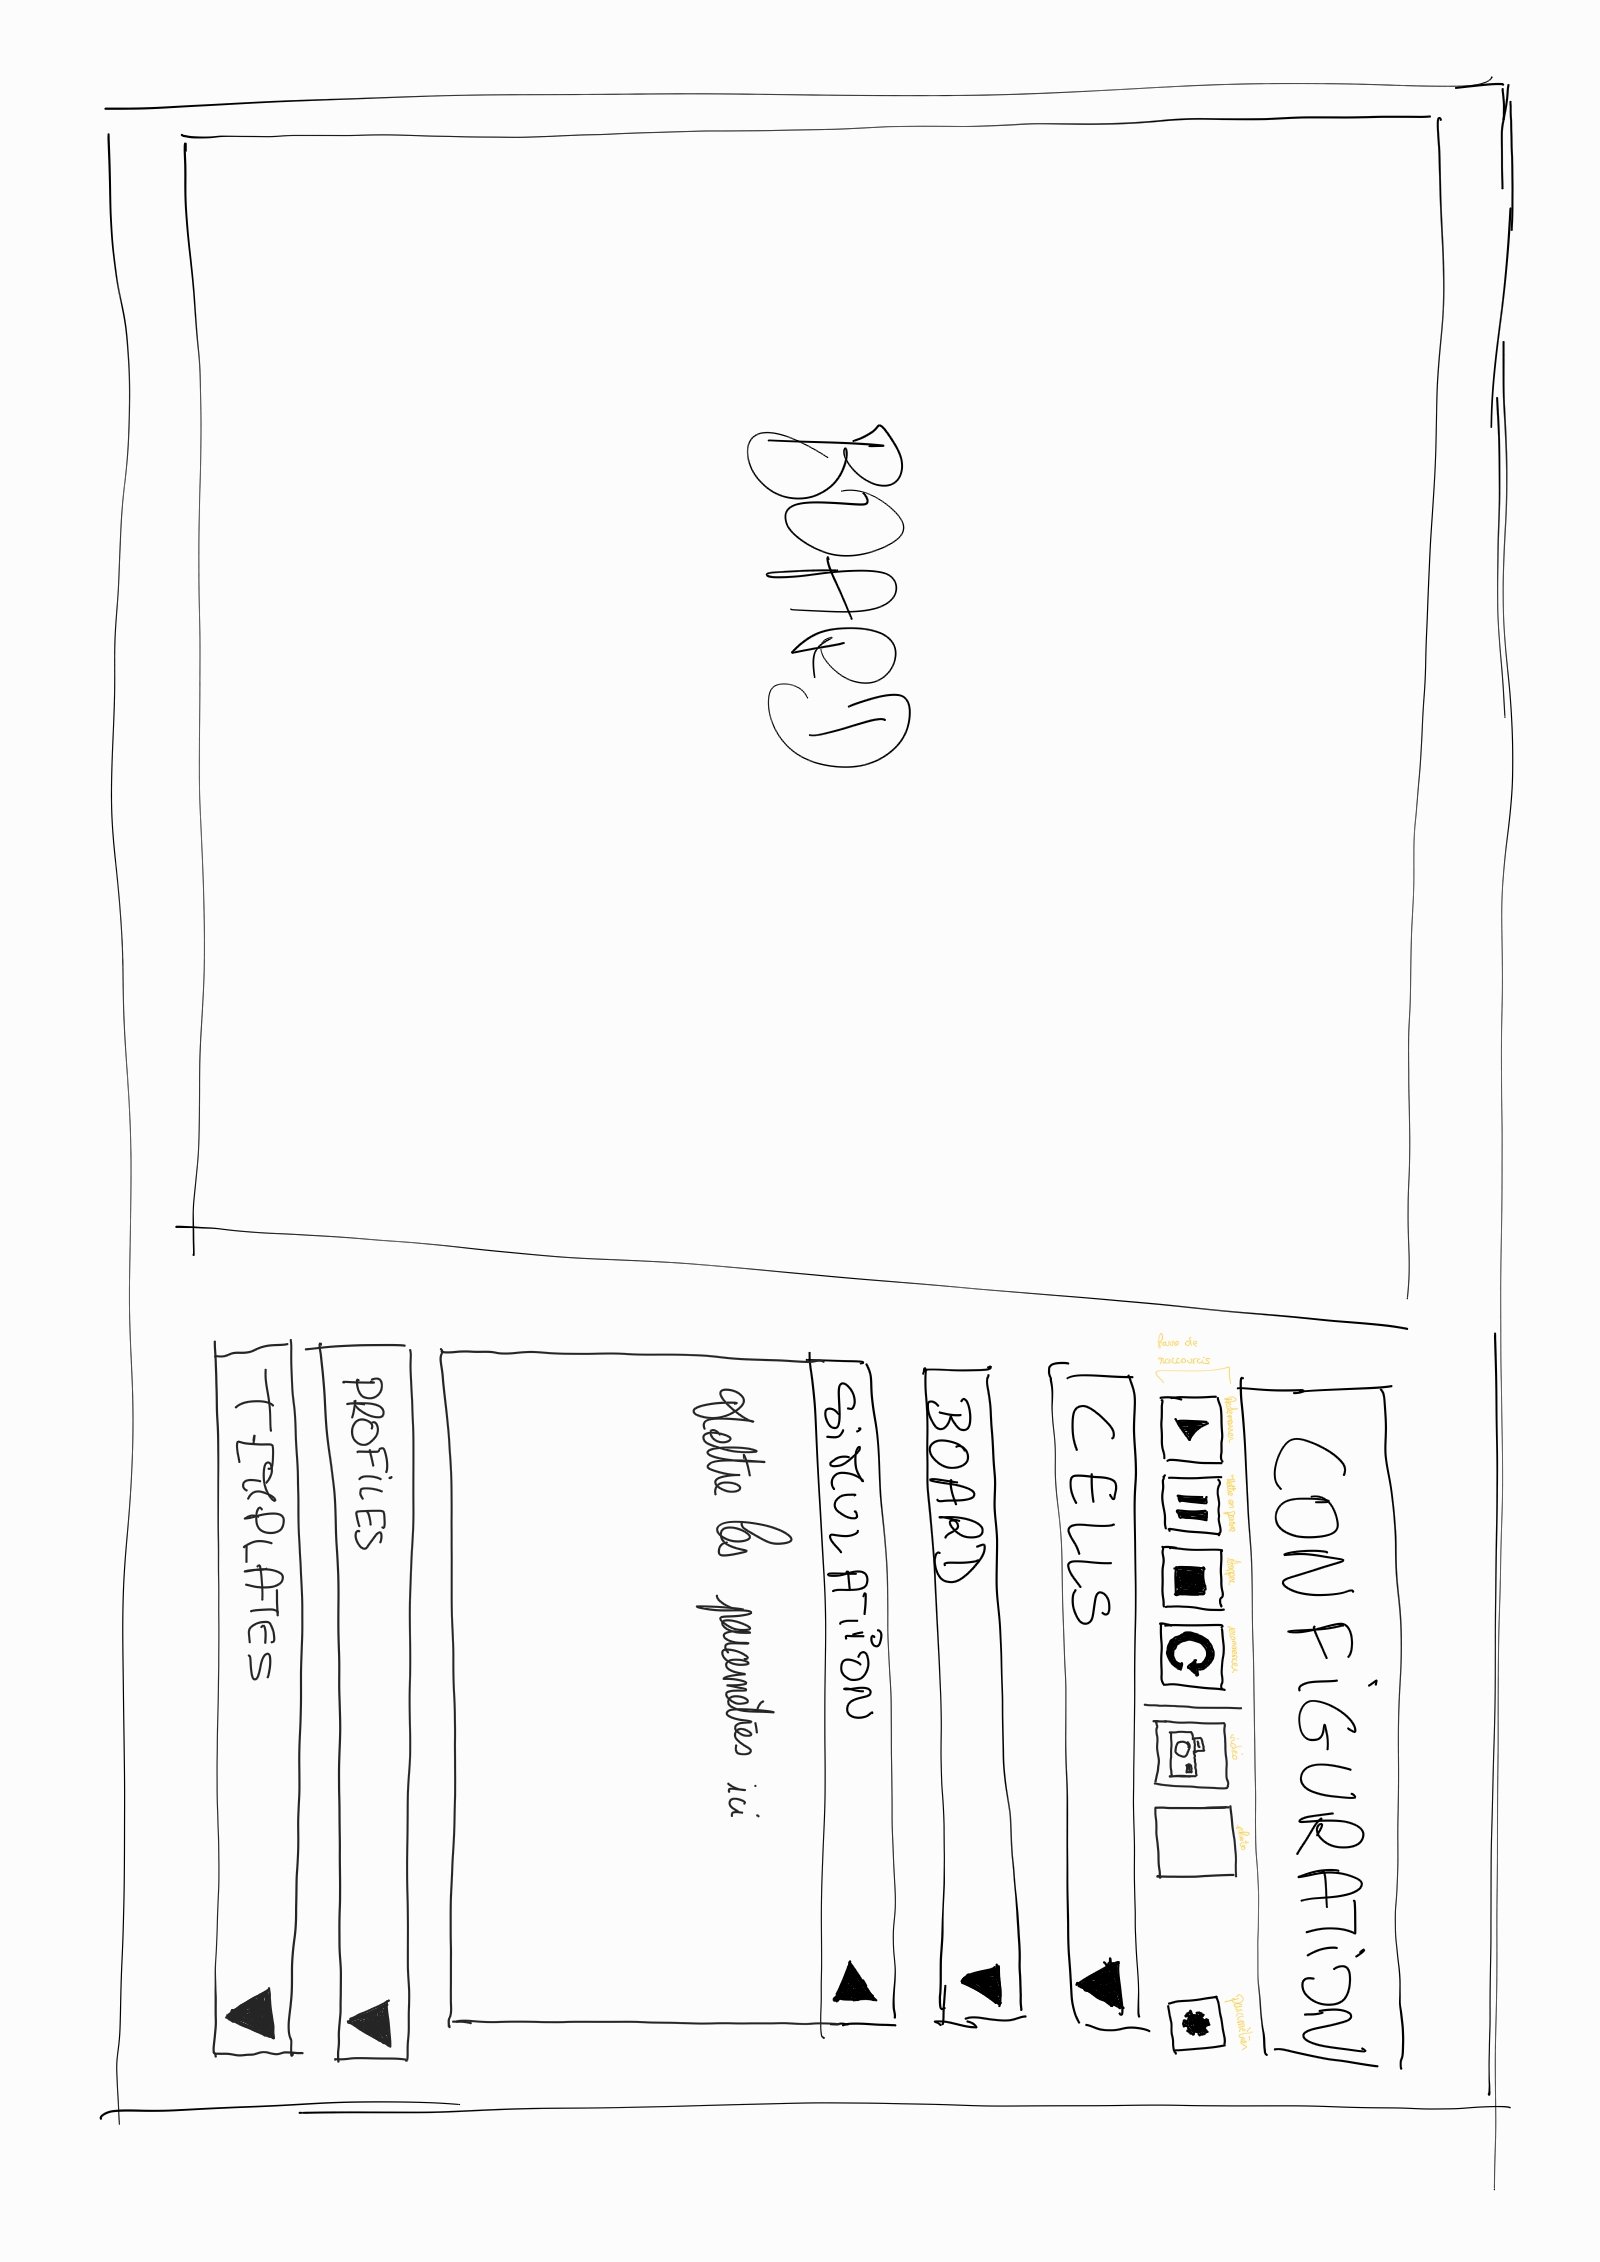 CONFiGURATiON
Redemarrer Mettre en pause Stopper recommencer vidéo photo paramètres
CELLS
BOARD
BOARD
SiMULATiON
Mettre les paramètres ici
PROFiLES
TEMPLATES